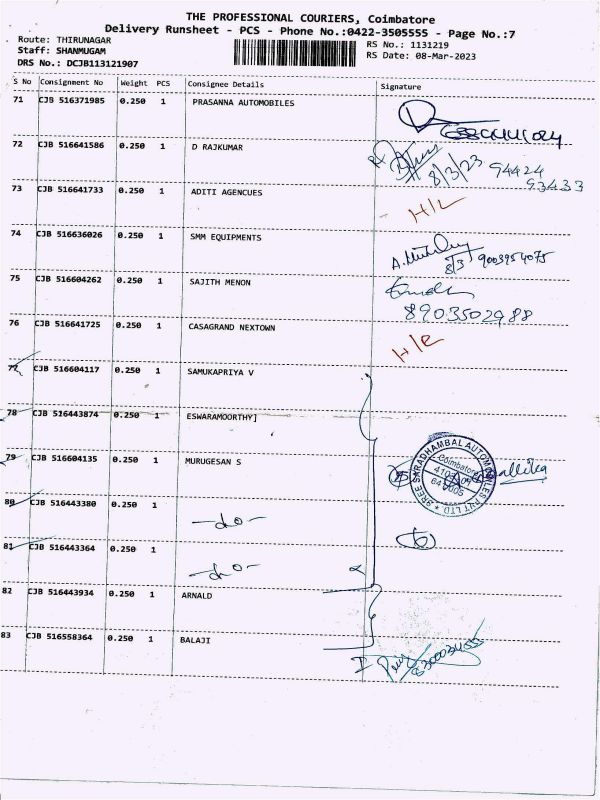 THE PROFESSIONAL COURIERS, Coimbatore
Delivery Runsheet - PCS - Phone No.:0422-3505555 - Page No.:7
Route: THIRUNAGAR
RS No.: 1131219
Staff: SHANMUGAM
RS Date: 08-Mar-2023
DRS No.: DCJB113121907
S No Consignment No Weight PCS Consignee Details Signature
71 CJB 516371985 0.250 1 PRASANNA AUTOMOBILES
72 CJB 516641586 0.250 1 D RAJKUMAR
8/3/23 94424
93433
73 CJB 516641733 0.250 1 ADITI AGENCUES
H/L
74 CJB 516636026 0.250 1 SMM EQUIPMENTS
8/3 9003954075
75 CJB 516604262 0.250 1 SAJITH MENON
8903502988
76 CJB 516641725 0.250 1 CASAGRAND NEXTOWN
77 CJB 516604117 0.250 1 SAMUKAPRIYA V
78 CJB 516443874 0.250 1 ESWARAMOORTHY]
79 CJB 516604135 0.250 1 MURUGESAN S
SREE SARADHAMBAL AUTOMOBILES PVT LTD
Coimbatore
80 CJB 516443380 0.250 1 -do-
81 CJB 516443364 0.250 1 -do-
82 CJB 516443934 0.250 1 ARNALD
83 CJB 516558364 0.250 1 BALAJI